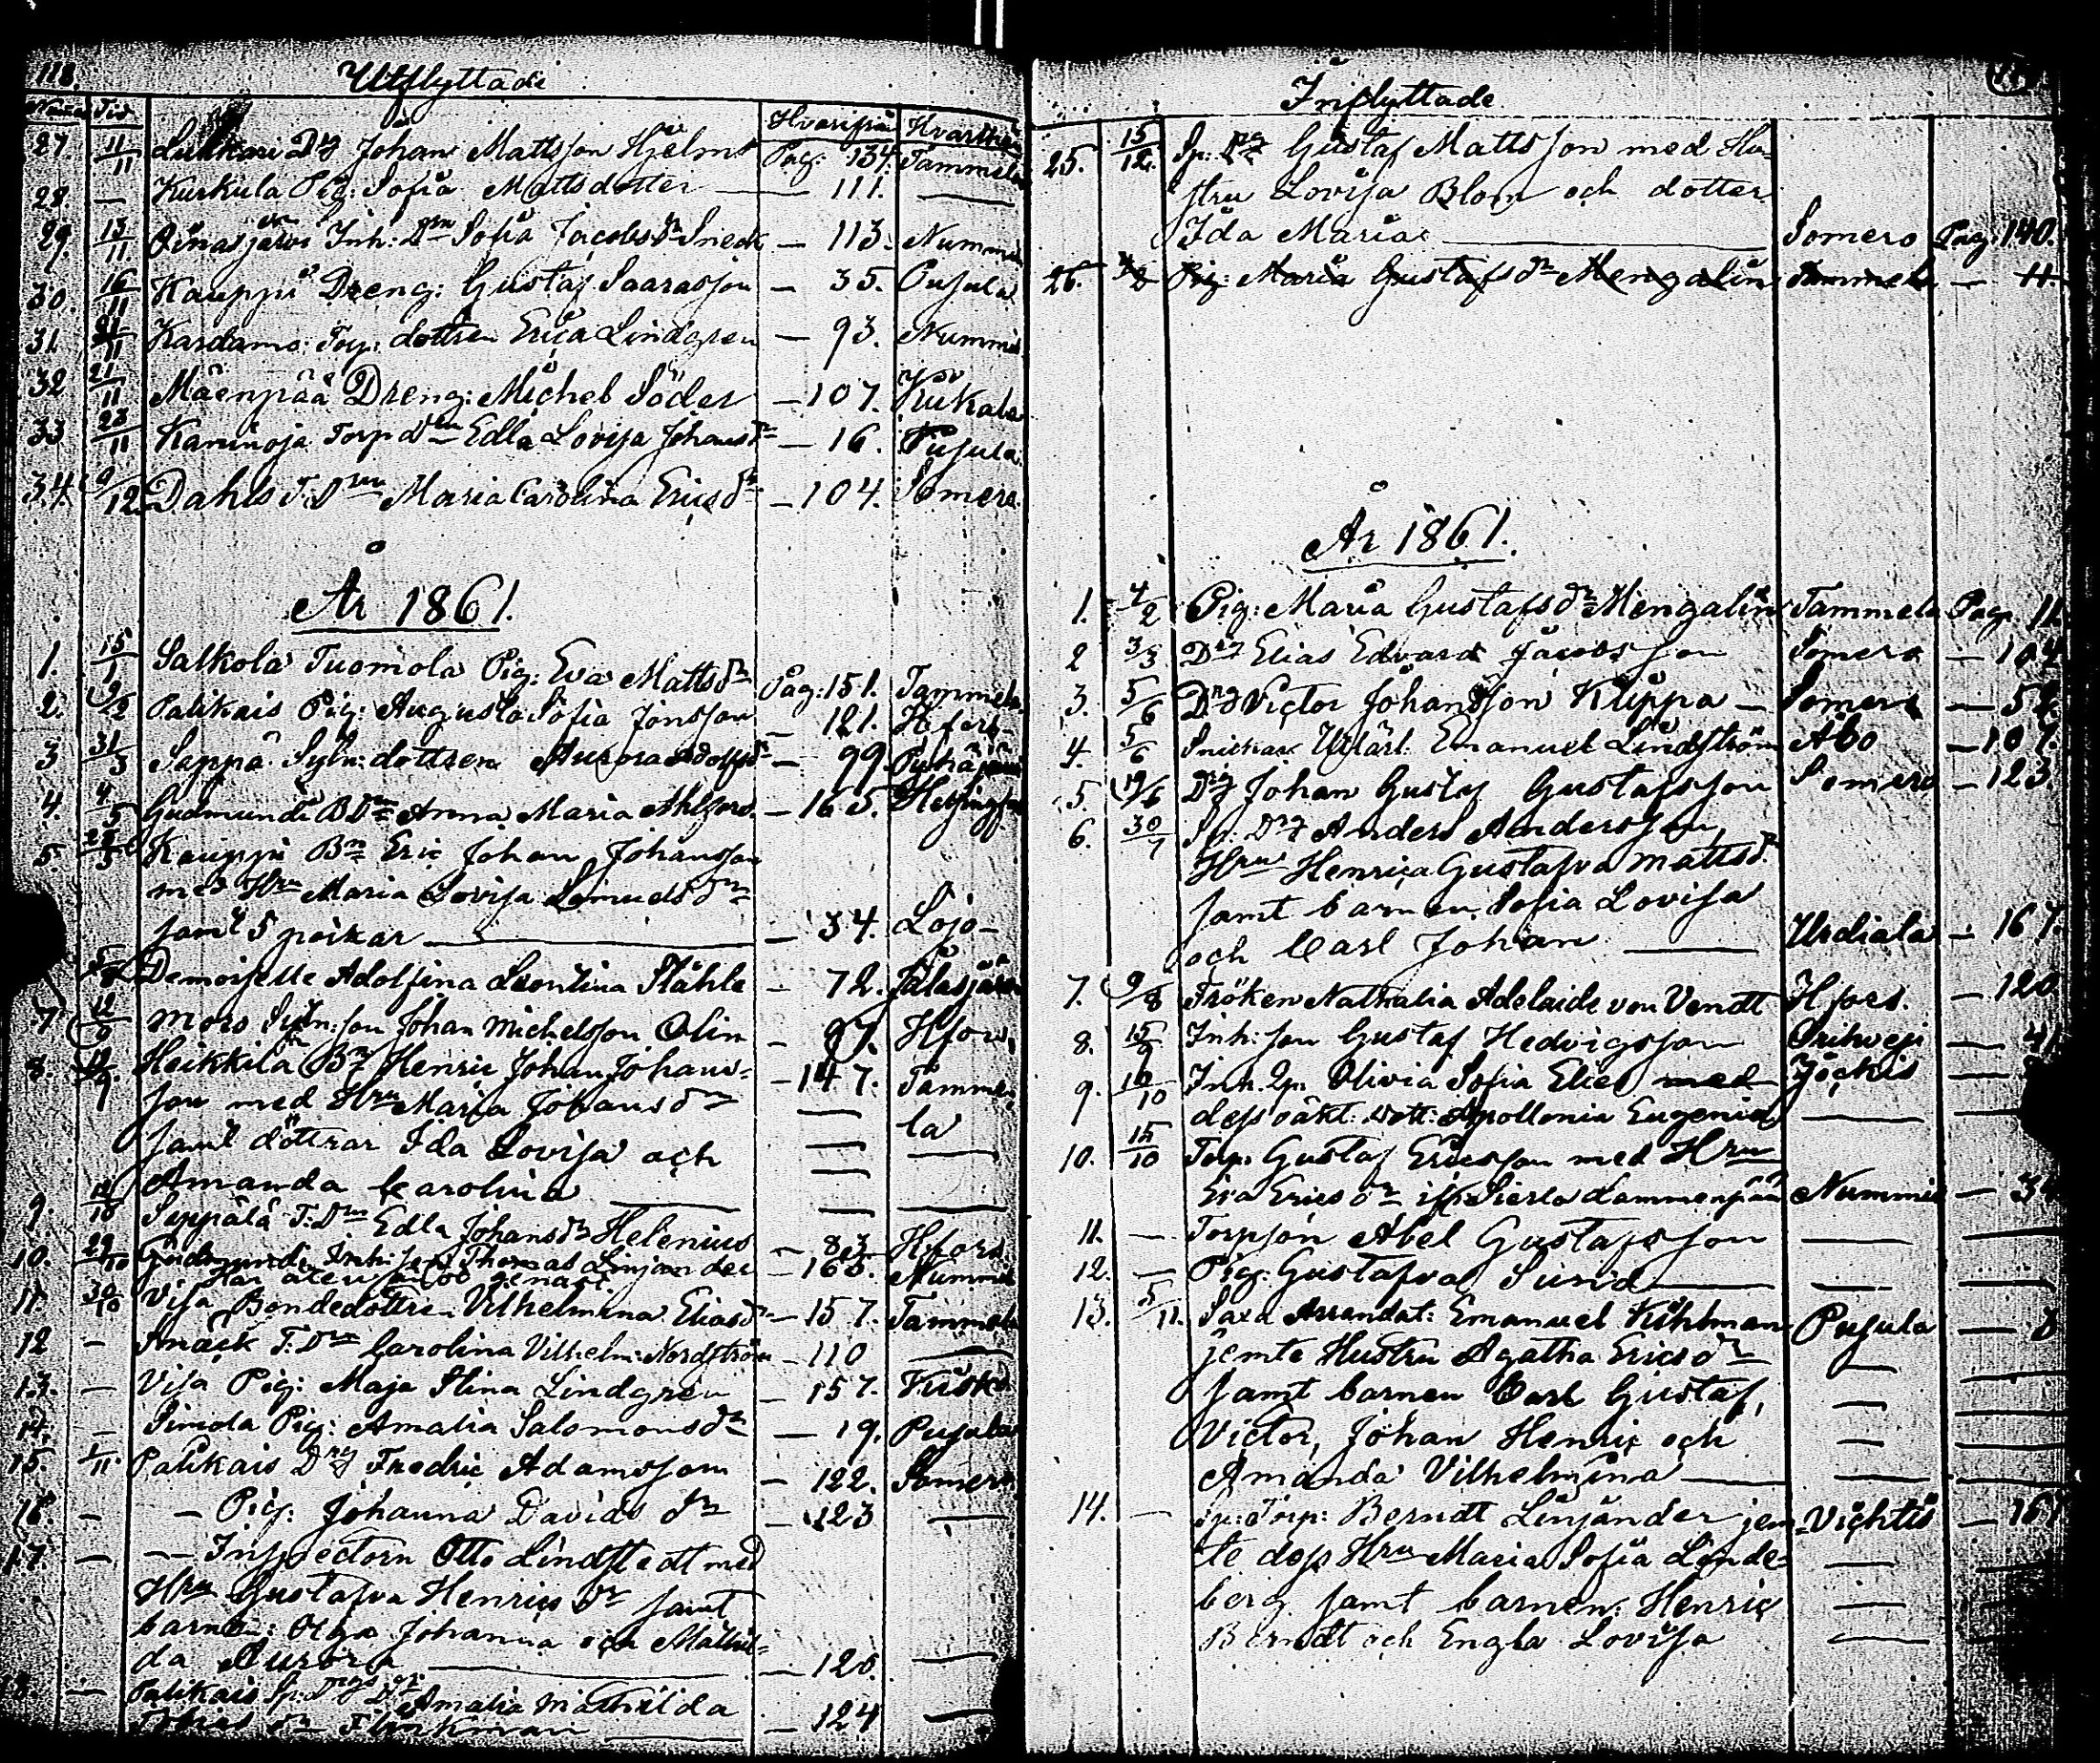 118.
Utflyttade
Hvarifrån Hvarthän
27. 11/11 Luukari Drg Johan Mattsson Hjelm Pag: 134. Tammela
28. — Kurkula Pig: Sofia Mattsdotter — 111. —
29. 13/11. Oinasjärvi Inh: Dtrn Sofia Jacobsdr Sneck — 113. Nummis
30. 16/11 Kauppi Dreng: Gustaf Saarasson — 35. Pusula
31. 21/11 Kardamo: Torp: dottren Erica Lindgren — 93. Nummis
32 21/11 Mäenpää Dreng: Michel Söder — 107. Kiikala
33 23/11 Kaminoja Torp Dtrn Edla Lovisa Johansdr — 16. Pusula.
34. 9/12 Dahls T. Dtrn Maria Carolina Ericsdr — 104. Somero.
År 1861.
1. 15/1 Salkola Tuomola Pig: Eva Mattsdr Pag: 151. Tammela
2. 9/2 Palikais Pig: Augusta Sofia Jonsson — 121. Hfors
3 31/3 Seppä Sytn: dottren Aurora Adolfsdr — 99. Pyhäjärvi
4. 4/5 Gudmundi BDtr Anna Maria Ahlfors. — 165. Helsingfors
5. Kauppi Bn Eric Johan Johansson
med Hru Maria Lovisa Samuelsdr
samt 5 poikar — 34. Lojo
Demoiselle Adolfina Leontina Ståhle — 72. Jalasjärvi
7. 12/9 Moro Sytn: son Johan Michelsson Olin — 97. Hfors.
8. Heikkilä Henric Johan Johans- — 147. Tamme-
son med Hru Maria Johansdr — la
samt döttrar Ida Lovisa och — —
Amanda Carolina — — —
9. 14/10 Seppälä T: Dtrn Edla Johansdr Helenius — 83 Hfors
10. 29/10 Gudmundi Inh: son Thomas Linjander — 165. Nummis
har återvändt genast.
11. 30/10 Visa Bondedottren Vilhelmina Eliasdr — 157. Tammela
12 — Smäck T: Dtrn Carolina Vilhelm: Nordström — 110 —
13. — Visa Pig: Maja Stina Lindgren — 157. Kisko
14. — Simola Pig: Amalia Salomonsdr — 19. Pusula
15. 1/11 Palikais Drg Fredric Adamsson — 122. Somero
16. — — Pig: Johanna Davidsdr — 123 —
17. — — Inspectorn Otto Lindstedt med
Hru Gustafva Henricsdr samt
barnen: Olga Johanna och Mathil-
da Aurora — 120. —
— Palikais Sp: Drgs Dtr Amalia Mathilda
— 124 —
Inflyttade
25. 15/12. Sp: Drg Gustaf Mattsson med Hu-
stru Lovisa Blom och dotter
Ida Maria — Somero Pag: 140.
26. 4/2 Pig: Maria Gustafsdr Mengalin Tammela — 11.
År 1861.
1. 4/2 Pig: Maria Gustafsdr Mengalin Tammela Pag. 11
2 3/3 Drg Elias Edvard Jacobsson Somero — 104
3. 5/6 Drg Victor Johansson Kuppa — Somero — 52
4. 5/6 Snickar Utlärl: Emanuel Lindström Åbo — 107.
5. 19/6 Drg Johan Gustaf Gustafsson Somero — 123.
6. 30/7 Sp: Drg Anders Andersson,
Hru Henrica Gustafva Mattsdr
samt barnen Sofia Lovisa
och Carl Johan — Urdiala — 167.
7. 9/8 Fröken Nathalia Adelaide von Vendt Hfors. — 120
8. 15/9 Inh: son Gustaf Hedvigsson Orihvesi — 41
9. 10/10 Inh. Qp. Olivia Sofia Elied med Jockis —
dess oäkt: dott: Apollonia Eugenia — —
10. 15/10 Torp. Gustaf Ericsson med Hru
Eva Ericsdr Lammenpää Nummis — 34
11. — Torpson Abel Gustafsson — —
12. — Pig: Gustafva Sund — —
13. 5/11. Saxa Arrendat: Emanuel Kihlman Pusula — 8
jemte Hustru Agatha Ericsdr —
samt barnen Carl Gustaf, — —
Victor, Johan Henric och — —
Amanda Vilhelmina — — —
14. — Sp: Torp: Berndt Linjander jem- Vichtis — 167
te dess Hru Maria Sofia Linde- — —
berg samt barnen: Henric — —
Berndt och Engla Lovisa — —